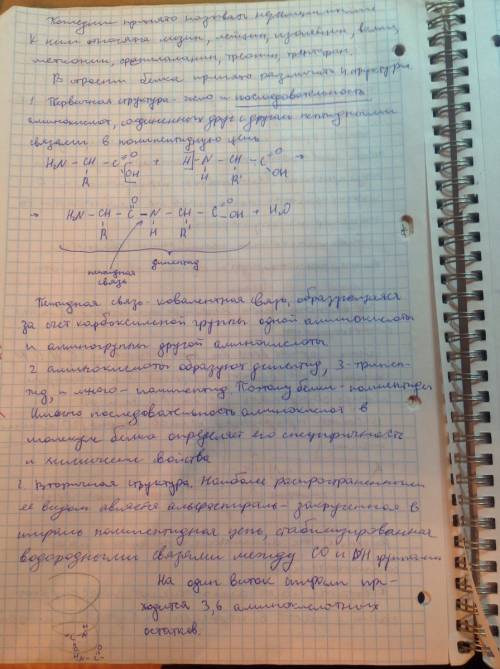 принято называть незаменимыми
К ним относятся лизин, лейцин, изолейцин, валин,
метионин, фенилаланин, треонин, триптофан.
В строении белка принято различать 4 структуры.
1. Первичная структура - число и последовательность
аминокислот, соединенных друг с другом пептидными
связями в полипептидную цепь
H₂N – CH – C =O OH + H – N – CH – C =O OH →
R H R'
→ H₂N – CH – C – N – CH – C =O OH + H₂O
R O H R'
пептидная связь
дипептид
Пептидная связь - ковалентная связь, образующаяся
за счет карбоксильной группы одной аминокислоты
и аминогруппы другой аминокислоты
2 аминокислоты образуют дипептид, 3 - трипеп-
тид, и много - полипептид. Поэтому белки - полипептиды
Именно последовательность аминокислот в
молекуле белка определяет его специфичность
и химические свойства
2. Вторичная структура. Наиболее распространенным
ее видом является альфаспираль - закрученная в
спираль полипептидная цепь, стабилизированная
водородными связями между CO и NH группами
На один виток спирали при-
ходится 3,6 аминокислотных
остатков.